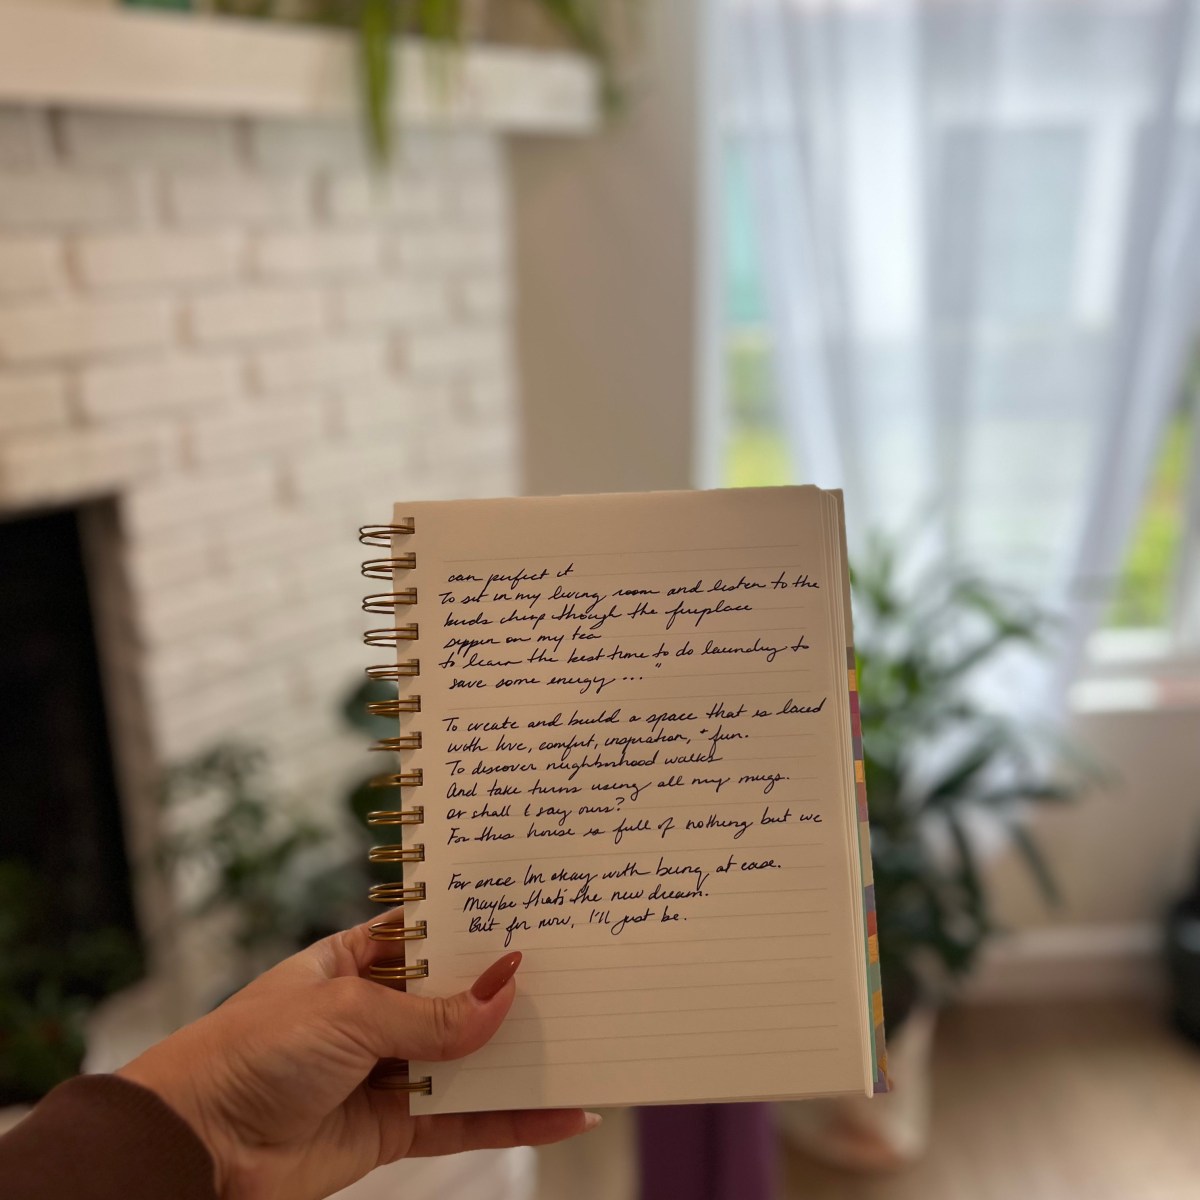 can perfect it
To sit in my living room and listen to the
birds chirp through the fireplace
sippin on my tea
to learn the best time to do laundry to
save some energy..."
To create and build a space that is laced
with love, comfort, inspiration, + fun.
To discover neighborhood walks
And take turns using all my mugs.
or shall I say ours?
For this house is full of nothing but we
For once I'm okay with being at ease.
Maybe that's the new dream.
But for now, I'll just be.